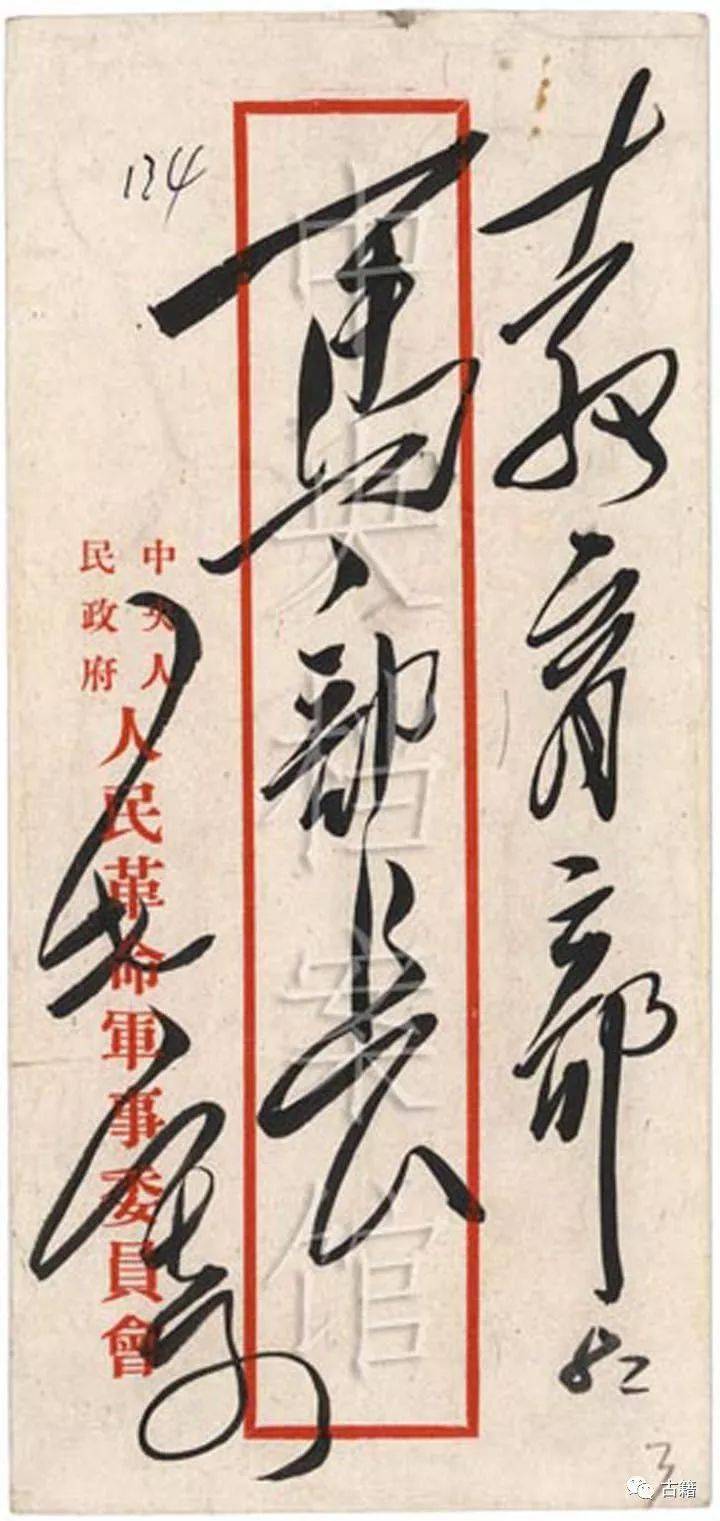 教育部
馬部長
毛
中央人
民政府
人民革命軍事委員會
中央档案馆
古籍